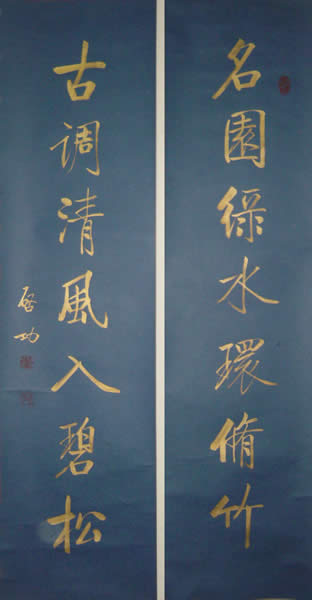 名園綠水環脩竹
古调清風入碧松
啓功